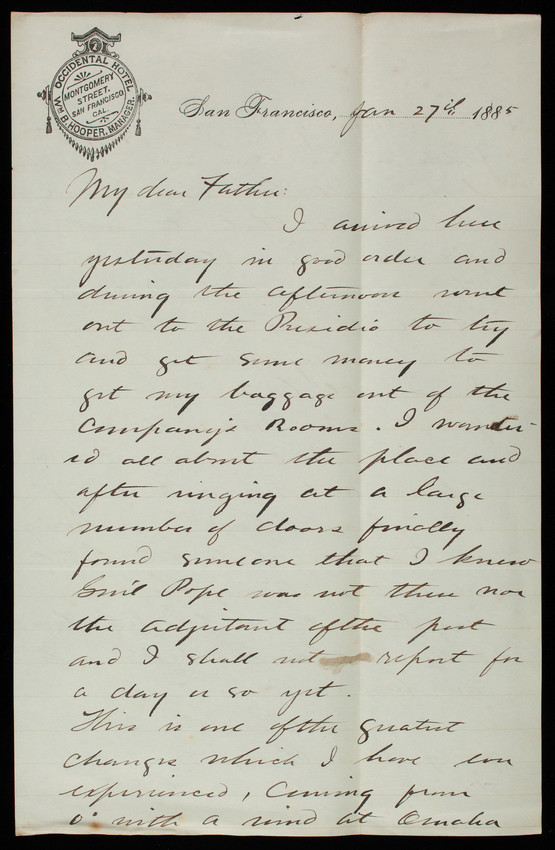 OCCIDENTAL HOTEL
MONTGOMERY
STREET,
SAN FRANCISCO
CAL.
WM B. HOOPER, MANAGER.
San Francisco, Jan 27th 1885
My dear Father:
I arrived here
yesterday in good order and
during the afternoon went
out to the Presidio to try
and get some money to
get my baggage out of the
Company's Rooms. I wander-
ed all about the place and
after ringing at a large
number of doors finally
found someone that I knew
Genl Pope was not there nor
the adjutant of the post
and I shall not report for
a day or so yet.
This is one of the greatest
changes which I have ever
experienced, Coming from
0° with a wind at Omaha